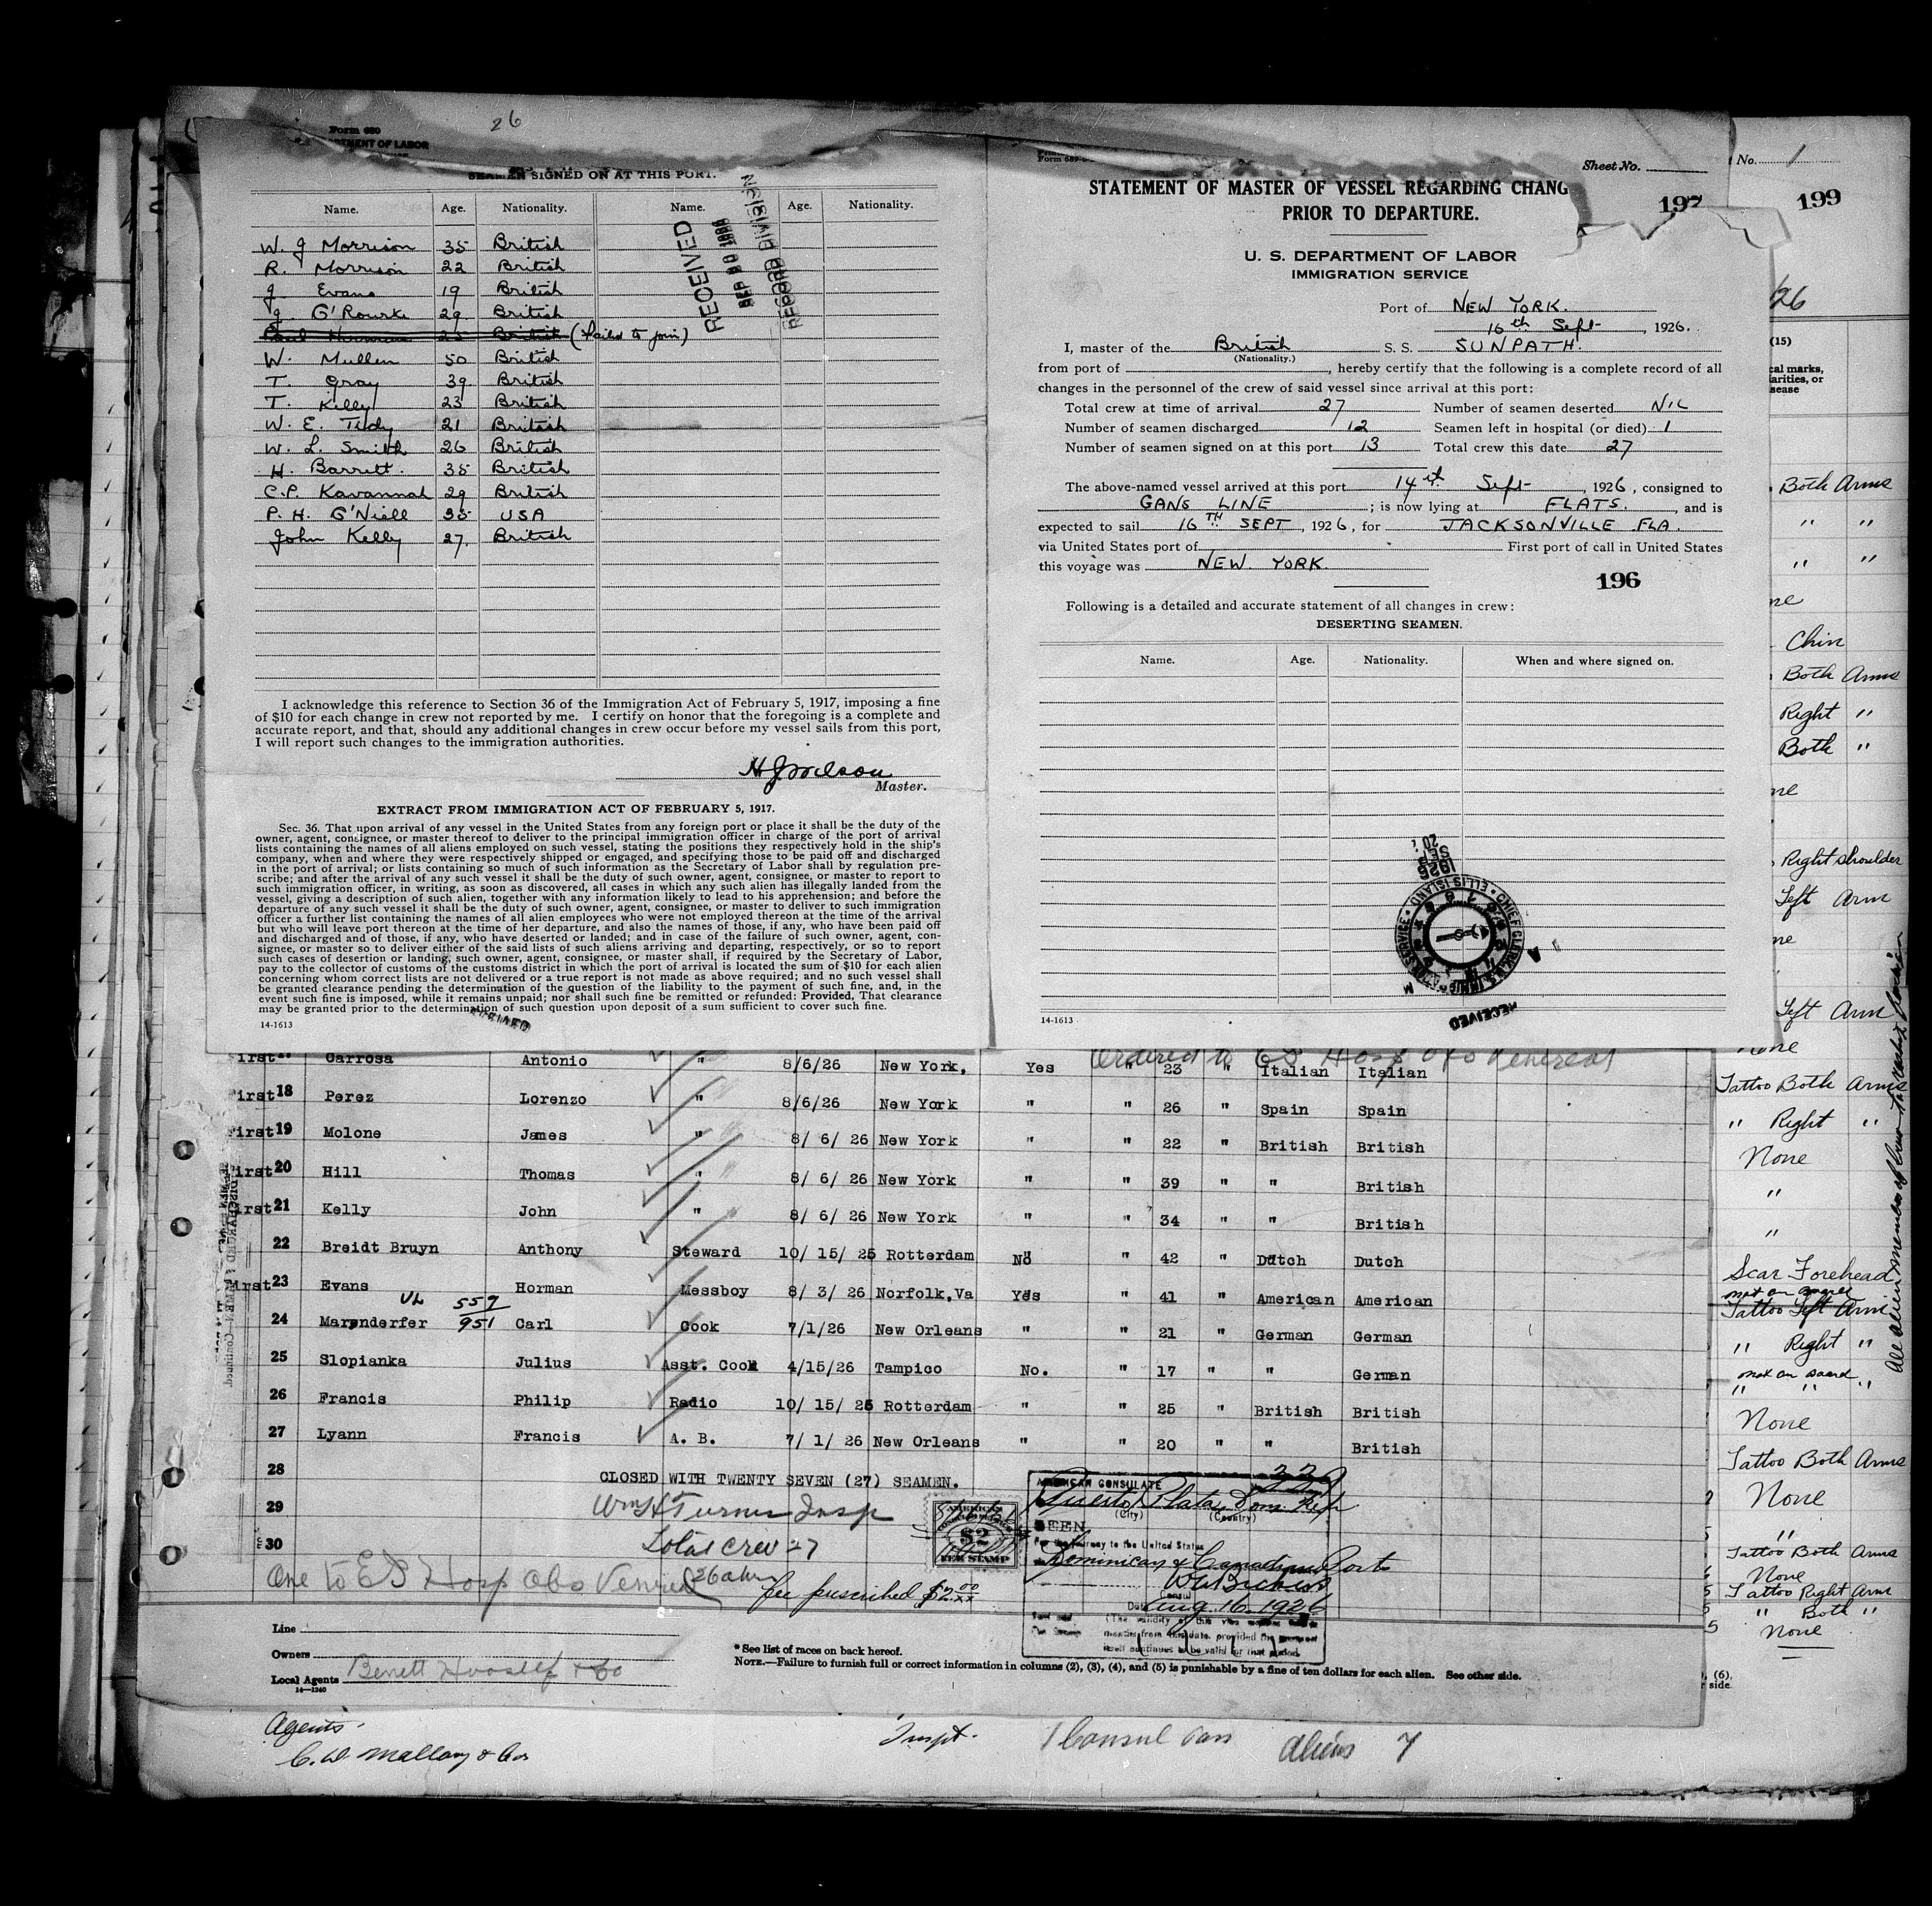 26
Form 680
DEPARTMENT OF LABOR
SEAMEN SIGNED ON AT THIS PORT.
Name. Age. Nationality. Name. Age. Nationality.
W. J Morrison 35 British
R. Morrison 22 British
J. Evans 19 British
J. O'Rourke 29 British
Paul 25 British (Failed to join)
W. Mullen 50 British
T. Gray 39 British
T. Kelly 23 British
W. E. Tidy 21 British
W. L. Smith 26 British
H. Barrett. 35 British
C.P. Kavannah 29 British
P. H. O'Niell 35 USA
John Kelly 27. British
RECEIVED
RECORD DIVISION
I acknowledge this reference to Section 36 of the Immigration Act of February 5, 1917, imposing a fine
of $10 for each change in crew not reported by me. I certify on honor that the foregoing is a complete and
accurate report, and that, should any additional changes in crew occur before my vessel sails from this port,
I will report such changes to the immigration authorities.
H J Wilson
Master.
EXTRACT FROM IMMIGRATION ACT OF FEBRUARY 5, 1917.
Sec. 36. That upon arrival of any vessel in the United States from any foreign port or place it shall be the duty of the
owner, agent, consignee, or master thereof to deliver to the principal immigration officer in charge of the port of arrival
lists containing the names of all aliens employed on such vessel, stating the positions they respectively hold in the ship's
company, when and where they were respectively shipped or engaged, and specifying those to be paid off and discharged
in the port of arrival; or lists containing so much of such information as the Secretary of Labor shall by regulation pre-
scribe; and after the arrival of any such vessel it shall be the duty of such owner, agent, consignee, or master to report to
such immigration officer, in writing, as soon as discovered, all cases in which any such alien has illegally landed from the
vessel, giving a description of such alien, together with any information likely to lead to his apprehension; and before the
departure of any such vessel it shall be the duty of such owner, agent, consignee, or master to deliver to such immigration
officer a further list containing the names of all alien employees who were not employed thereon at the time of the arrival
but who will leave port thereon at the time of her departure, and also the names of those, if any, who have been paid off
and discharged and of those, if any, who have deserted or landed; and in case of the failure of such owner, agent, con-
signee, or master so to deliver either of the said lists of such aliens arriving and departing, respectively, or so to report
such cases of desertion or landing, such owner, agent, consignee, or master shall, if required by the Secretary of Labor,
pay to the collector of customs of the customs district in which the port of arrival is located the sum of $10 for each alien
concerning whom correct lists are not delivered or a true report is not made as above required; and no such vessel shall
be granted clearance pending the determination of the question of the liability to the payment of such fine, and, in the
event such fine is imposed, while it remains unpaid; nor shall such fine be remitted or refunded: Provided, That clearance
may be granted prior to the determination of such question upon deposit of a sum sufficient to cover such fine.
14-1613
Form 689
Sheet No.
STATEMENT OF MASTER OF VESSEL REGARDING CHANG
PRIOR TO DEPARTURE.
197
U. S. DEPARTMENT OF LABOR
IMMIGRATION SERVICE
Port of NEW YORK.
16th Sept, 1926.
I, master of the British S. S. SUNPATH.
(Nationality.)
from port of , hereby certify that the following is a complete record of all
changes in the personnel of the crew of said vessel since arrival at this port:
Total crew at time of arrival 27 Number of seamen deserted NIL
Number of seamen discharged 12 Seamen left in hospital (or died) 1
Number of seamen signed on at this port 13 Total crew this date 27
The above-named vessel arrived at this port 14th Sept, 1926, consigned to
GANS LINE ; is now lying at FLATS. , and is
expected to sail 16TH SEPT, 1926, for JACKSONVILLE FLA.
via United States port of First port of call in United States
this voyage was NEW YORK.
196
Following is a detailed and accurate statement of all changes in crew:
DESERTING SEAMEN.
Name. Age. Nationality. When and where signed on.
1926
SEP
20
CHIEF CLERK U.S. IMMIGRATION SERVICE ELLIS ISLAND
RECEIVED
14-1613
No. 1
199
/26
(15)
cal marks,
larities, or
sease
Both Arms
" "
" "
ne
Chin
Both Arms
Right "
Both "
ne
Right shoulder
Left Arm
ne
Left Arm
None
Tattoo Both Arms
" Right "
None
"
"
Scar Forehead
not on board
Tattoo Left Arm
" Right "
not on board
" " "
None
Tattoo Both Arms
None
"
Tattoo Both Arms
None
Tattoo Right Arm
" Both "
None
First Carrosa Antonio " 8/6/26 New York, Yes " 23 " Italian Italian
Ordered to ES Hosp obs Venereal
First 18 Perez Lorenzo " 8/6/26 New York " " 26 " Spain Spain
First 19 Molone James " 8/ 6/ 26 New York " " 22 " British British
First 20 Hill Thomas " 8/ 6/ 26 New York " " 39 " " British
First 21 Kelly John " 8/ 6/ 26 New York " " 34 " " British
22 Breidt Bruyn Anthony Steward 10/ 15/ 25 Rotterdam No " 42 " Dutch Dutch
First 23 Evans Horman Messboy 8/ 3/ 26 Norfolk,Va Yes " 41 " American American
VL 559
951
24 Marenderfer Carl Cook 7/1/26 New Orleans " " 21 " German German
25 Slopianka Julius Asst. Cook 4/15/26 Tampico No. " 17 " " German
26 Francis Philip Radio 10/ 15/ 25 Rotterdam " " 25 " British British
27 Lyann Francis A. B. 7/ 1/ 26 New Orleans " " 20 " " British
28 CLOSED WITH TWENTY SEVEN (27) SEAMEN.
29 Wm H Turner Insp
30 Total crew 27
One to ES Hosp obs Venereal
fee prescribed $2.00
AMERICAN
$2
FEE STAMP
AMERICAN CONSULATE
Puerto Plata, Dom. Rep
(City) (Country)
SEEN
For the journey to the United States
Dominican & Canadian Ports
Consul
Date Aug. 16. 1926
(The validity of this visa
months from this date, provided the passport
itself continues to be valid for that period.
Line
Owners
Local Agents
14-1240
* See list of races on back hereof.
NOTE.—Failure to furnish full or correct information in columns (2), (3), (4), and (5) is punishable by a fine of ten dollars for each alien. See other side.
(6).
side.
Agents.
C. D. Mallory & Co
Inspt.
1 Consul
Aliens 7